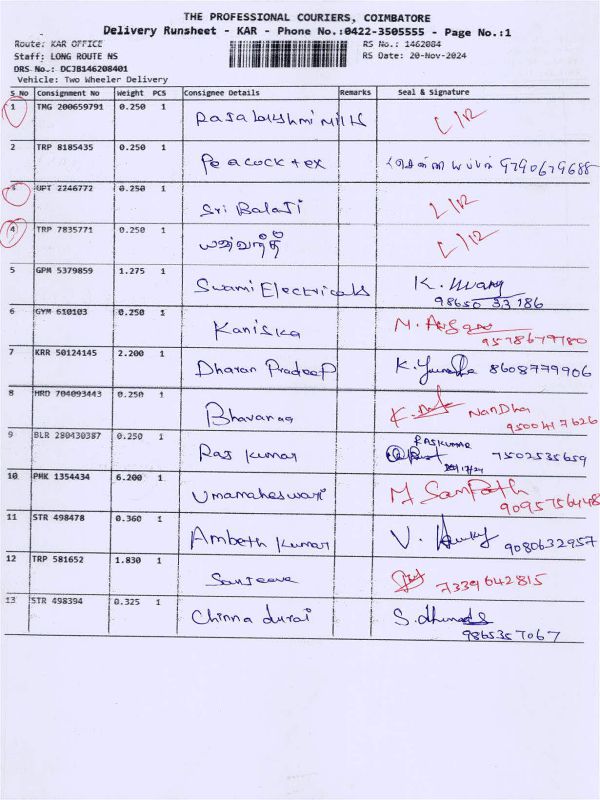 THE PROFESSIONAL COURIERS, COIMBATORE
Delivery Runsheet - KAR - Phone No.:0422-3505555 - Page No.:1
Route: KAR OFFICE RS No.: 1462084
Staff: LONG ROUTE NS RS Date: 20-Nov-2024
DRS No.: DCJB146208401
Vehicle: Two Wheeler Delivery
S No Consignment No Weight PCS Consignee Details Remarks Seal & Signature
1 TMG 200659791 0.250 1 Rajalakshmi Mills L/12
2 TRP 8185435 0.250 1 Peacock tex 9790679688
3 UPT 2246772 0.250 1 Sri Balaji L/12
4 TRP 7835771 0.250 1 யஷ்வந்த் L/12
5 GPM 5379859 1.275 1 Swami Electricals K.
98650 33186
6 GYM 610103 0.250 1 Kaniska M.
9578679780
7 KRR 50124145 2.200 1 Dharan Pradeep K. 8608779906
8 HRD 704093443 0.250 1 Bhavanaa K. Nandha
9500417626
9 BLR 280430387 0.250 1 Raj kumar RAJKUMAR
7502535659
10 PMK 1354434 6.200 1 Umamaheswari M Sampath
9095756448
11 STR 498478 0.360 1 Ambeth kumar V. 9080632957
12 TRP 581652 1.830 1 Sanjeeva 7339642815
13 STR 498394 0.325 1 Chinna durai S.
9865357067